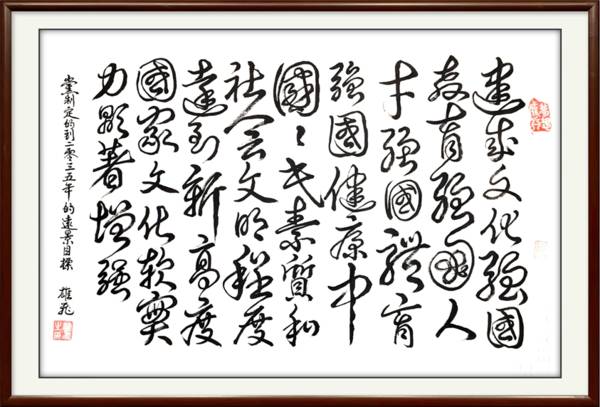 建成文化强國
教育强國人
才强國體育
強國健康中
國々民素質和
社会文明程度
達到新高度
國家文化软實
力顯著增强
黨制定的到二零三五年的遠景目標 雄飛